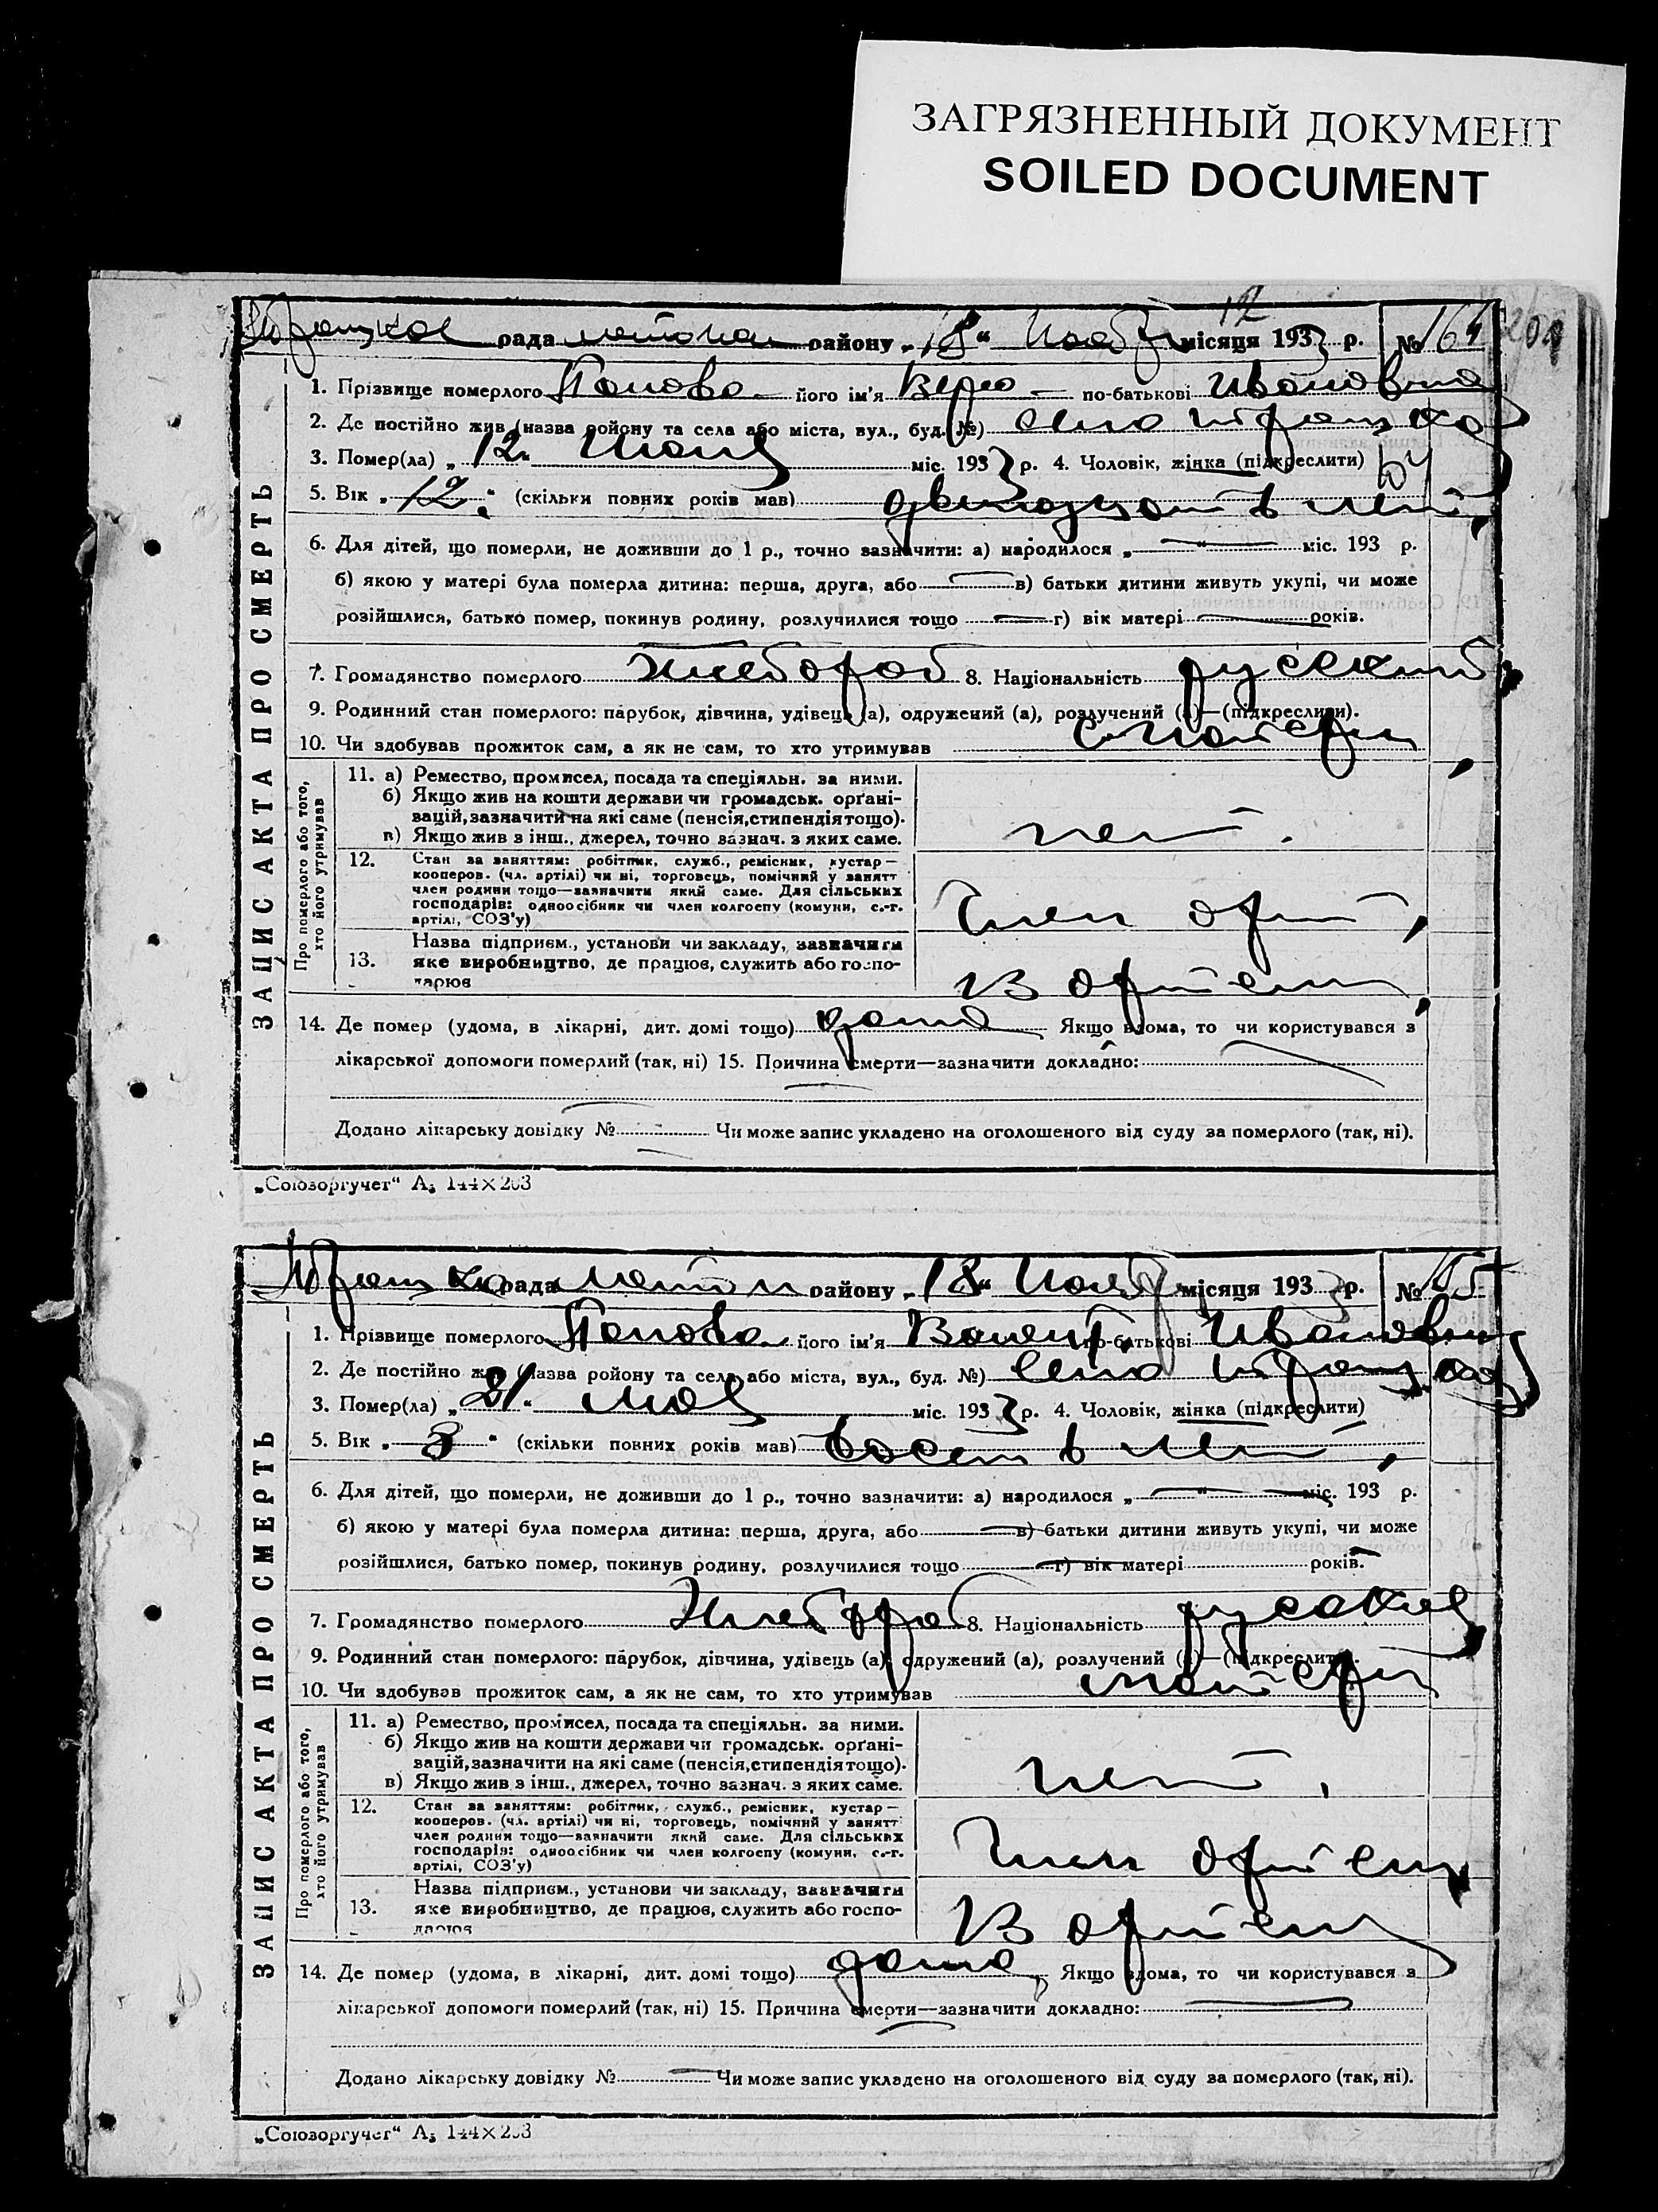 ЗАГРЯЗНЕННЫЙ ДОКУМЕНТ
SOILED DOCUMENT
12
рада району „18“ місяця 1933 р. № 164
1. Прізвище померлого Попова його ім'я Вера по-батькові Ивановна
2. Де постійно жив (назва ройону та села або міста, вул., буд. №) село
3. Помер(ла) „12“ міс. 1933 р. 4. Чоловік, жінка (підкреслити)
5. Вік „12“ (скільки повних років мав) двенадцать лет
6. Для дітей, що померли, не доживши до 1 р., точно зазначити: а) народилося „ “ міс. 193 р.
б) якою у матері була померла дитина: перша, друга, або в) батьки дитини живуть укупі, чи може
розійшлися, батько помер, покинув родину, розлучилися тощо г) вік матері років.
7. Громадянство померлого хлебороб 8. Національність русский
9. Родинний стан померлого: парубок, дівчина, удівець (а), одружений (а), розлучений (а)—(підкреслити).
10. Чи здобував прожиток сам, а як не сам, то хто утримував с матери
11. а) Ремество, промисел, посада та спеціяльн. за ними.
б) Якщо жив на кошти держави чи громадськ. орґані-
зацій, зазначити на які саме (пенсія, стипендія тощо).
в) Якщо жив з інш., джерел, точно зазнач. з яких саме.
нет.
12. Стан за заняттям: робітник, служб., ремісник, кустар —
кооперов. (чл. артілі) чи ні, торговець, помічний у занятт
член родини тощо—зазначити який саме. Для сільських
господарів: одноосібник чи член колгоспу (комуни, с.-г.
артілі, СОЗ'у)
член
13. Назва підприєм., установи чи закладу, зазначити
яке виробництво, де працює, служить або госпо-
дарює
В артели
14. Де помер (удома, в лікарні, дит. домі тощо) дома Якщо вдома, то чи користувався з
лікарської допомоги померлий (так, ні) 15. Причина смерти—зазначити докладно:
Додано лікарську довідку № Чи може запис укладено на оголошеного від суду за померлого (так, ні).
„Союзоргучет“ А₅ 144×203
ЗАПИС АКТА ПРО СМЕРТЬ
Про померлого або того,
хто його утримував
рада району „18“ місяця 1933 р. №
1. Прізвище померлого Попова його ім'я Валент по-батькові
2. Де постійно жив (назва ройону та села або міста, вул., буд. №) село
3. Помер(ла) „21“ мая міс. 1933 р. 4. Чоловік, жінка (підкреслити)
5. Вік „8“ (скільки повних років мав) восемь лет
6. Для дітей, що померли, не доживши до 1 р., точно зазначити: а) народилося „ “ міс. 193 р.
б) якою у матері була померла дитина: перша, друга, або в) батьки дитини живуть укупі, чи може
розійшлися, батько помер, покинув родину, розлучилися тощо г) вік матері років.
7. Громадянство померлого хлебороб 8. Національність
9. Родинний стан померлого: парубок, дівчина, удівець (а), одружений (а), розлучений (а)—(підкреслити).
10. Чи здобував прожиток сам, а як не сам, то хто утримував матери
11. а) Ремество, промисел, посада та спеціяльн. за ними.
б) Якщо жив на кошти держави чи громадськ. орґані-
зацій, зазначити на які саме (пенсія, стипендія тощо).
в) Якщо жив з інш., джерел, точно зазнач. з яких саме.
нет,
12. Стан за заняттям: робітник, служб., ремісник, кустар —
кооперов. (чл. артілі) чи ні, торговець, помічний у занятт
член родини тощо—зазначити який саме. Для сільських
господарів: одноосібник чи член колгоспу (комуни, с.-г.
артілі, СОЗ'у)
член артели
13. Назва підприєм., установи чи закладу, зазначити
яке виробництво, де працює, служить або госпо-
дарює
В артели
14. Де помер (удома, в лікарні, дит. домі тощо) дома Якщо вдома, то чи користувався з
лікарської допомоги померлий (так, ні) 15. Причина смерти—зазначити докладно:
Додано лікарську довідку № Чи може запис укладено на оголошеного від суду за померлого (так, ні).
„Союзоргучет“ А₅ 144×203
ЗАПИС АКТА ПРО СМЕРТЬ
Про померлого або того,
хто його утримував